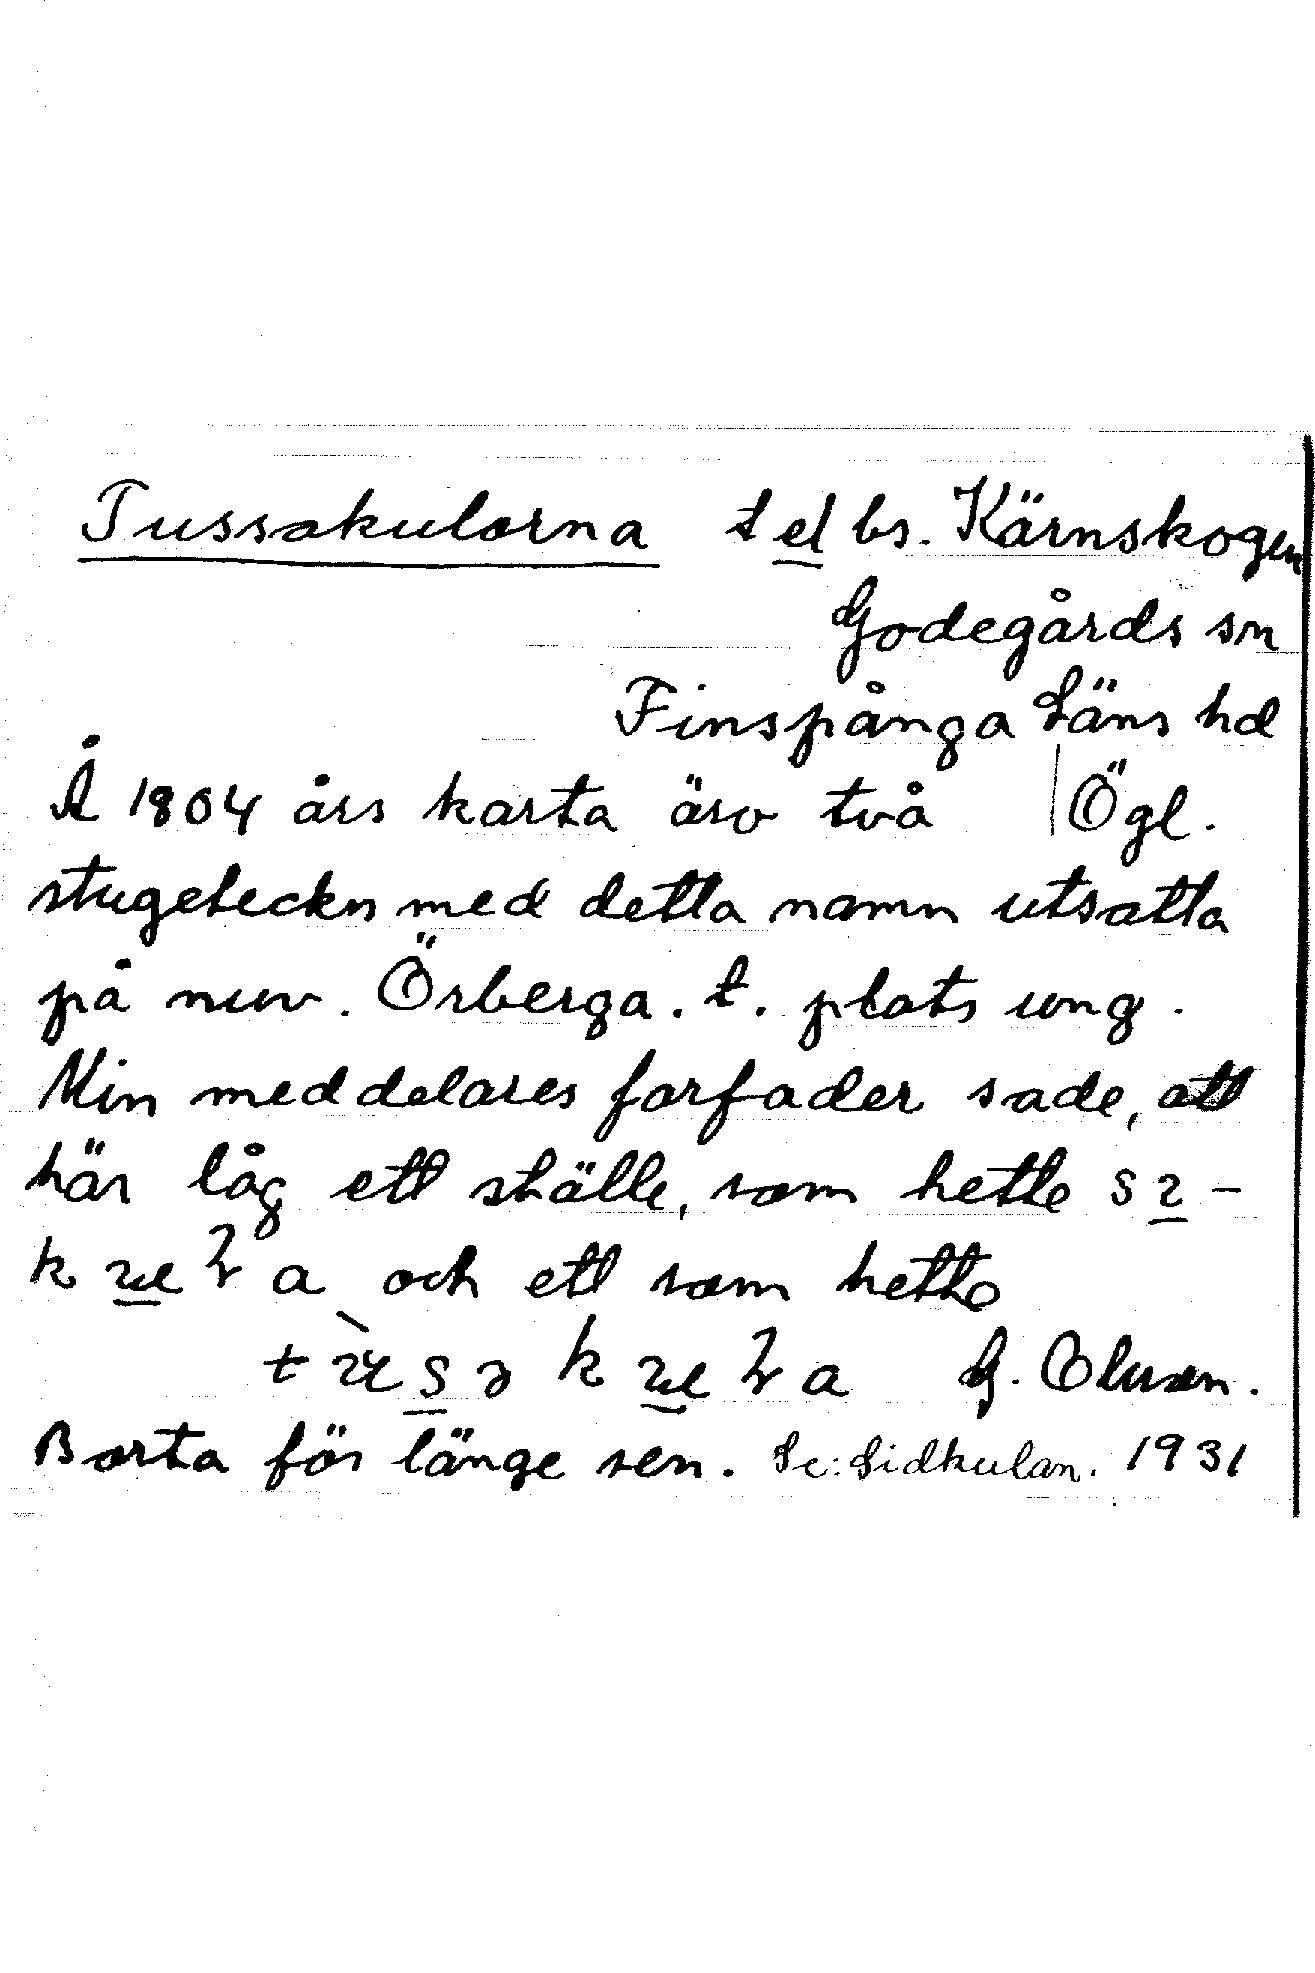 Tussakulorna t el bs. Kärnskogen
Godegårds sn
Finspånga Läns hd
Å 1804 års karta äro två Ögl.
stugeteckn med detta namn utsatta
på nuv. Örberga. t. plats ung.
Min meddelares farfader sade, att
här låg ett ställe, som hette
och ett som hette
G. Olusen.
Borta för länge sen. Se: Lidkulan. 1931